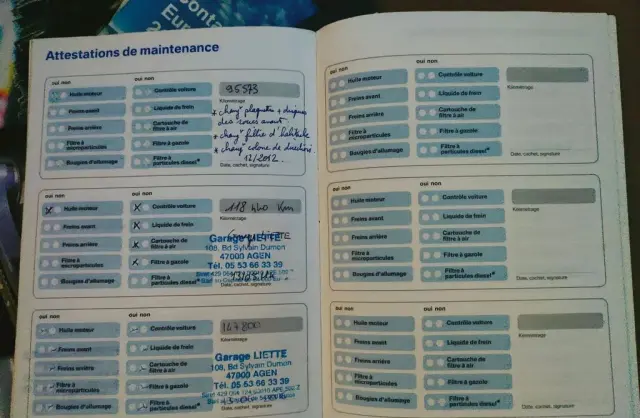 Attestations de maintenance
oui non
oui non
Huile moteur
Contrôle voiture
95573
Freins avant
Liquide de frein
Kilométrage
Freins arrière
Cartouche de filtre à air
Filtre à microparticules
Filtre à gazole
Bougies d'allumage
Filtre à particules diesel*
+ chang<sup>t</sup> plaquettes + disques
des roues avant.
+ chang<sup>t</sup> filtre d'habitacle
+ chang<sup>t</sup> colonne de direction
12/2012.
Date, cachet, signature
oui non
oui non
Huile moteur
Contrôle voiture
118 440 Km
Freins avant
Liquide de frein
Kilométrage
Freins arrière
Cartouche de filtre à air
Filtre à microparticules
Filtre à gazole
Bougies d'allumage
Filtre à particules diesel*
Garage LIETTE
108, Bd Sylvain Dumon
47000 AGEN
Tél. 05 53 66 33 39
Date, cachet, signature
oui non
oui non
Huile moteur
Contrôle voiture
147800
Freins avant
Liquide de frein
Kilométrage
Freins arrière
Cartouche de filtre à air
Filtre à microparticules
Filtre à gazole
Bougies d'allumage
Filtre à particules diesel*
Garage LIETTE
108, Bd Sylvain Dumon
47000 AGEN
Tél. 05 53 66 33 39
Date, cachet, signature
oui non
oui non
Huile moteur
Contrôle voiture
Freins avant
Liquide de frein
Kilométrage
Freins arrière
Cartouche de filtre à air
Filtre à microparticules
Filtre à gazole
Bougies d'allumage
Filtre à particules diesel*
Date, cachet, signature
oui non
oui non
Huile moteur
Contrôle voiture
Freins avant
Liquide de frein
Kilométrage
Freins arrière
Cartouche de filtre à air
Filtre à microparticules
Filtre à gazole
Bougies d'allumage
Filtre à particules diesel*
Date, cachet, signature
oui non
oui non
Huile moteur
Contrôle voiture
Freins avant
Liquide de frein
Kilométrage
Freins arrière
Cartouche de filtre à air
Filtre à microparticules
Filtre à gazole
Bougies d'allumage
Filtre à particules diesel*
Date, cachet, signature